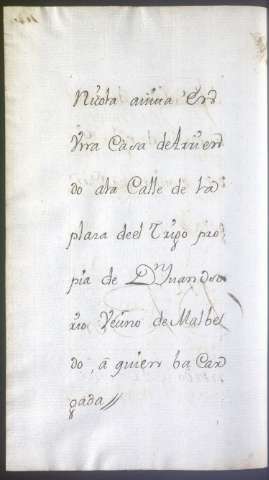 Nicola aiuua en
Vna Casa de Arien
do ala Calle de la
plaza de el Trigo pro
pia de Dn Juan Oso
rio Vecino de Malbe
do, â quien ba Car
gada//